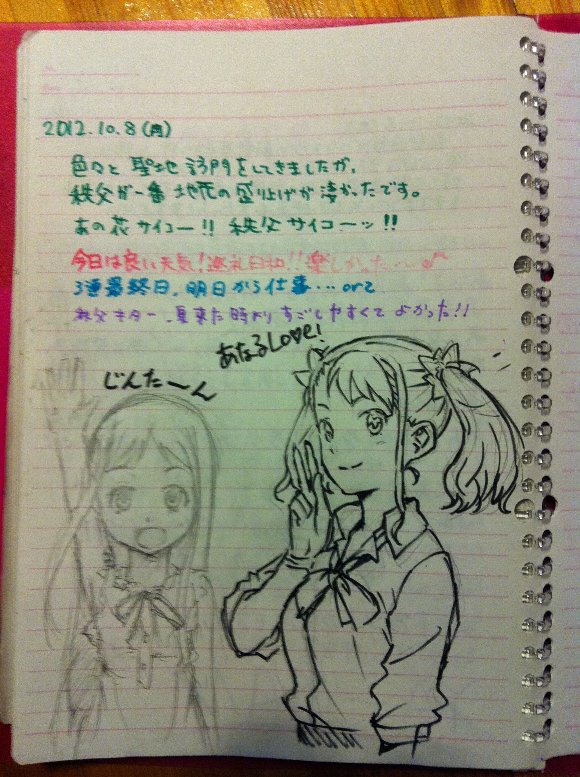 2012.10.8(月)
色々と 聖地訪問をしてきましたが、
秩父が一番 地元の盛り上げが凄かったです。
あの花サイコー!! 秩父サイコーッ!!
今日は良い天気!巡礼日和!!楽しかった〜♪
3連最終日、明日から仕事…orz
秩父キター、夏来た時よりすごしやすくてよかった!!
あなるLove!
じんたーん